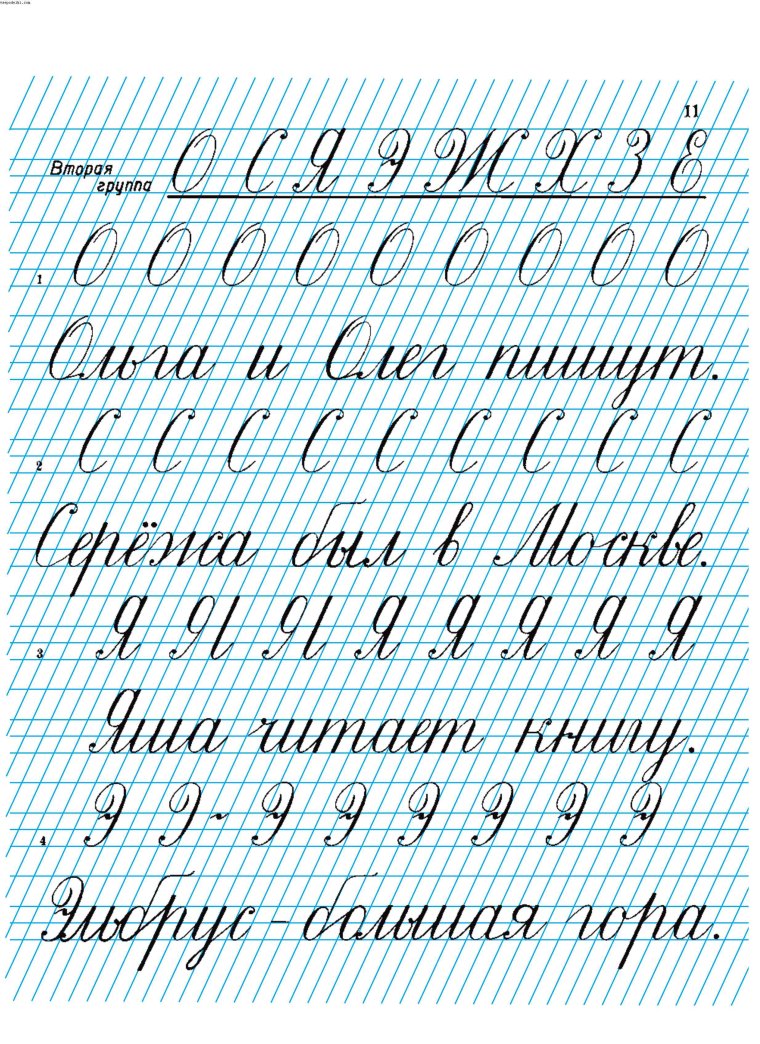 11
Вторая группа О С Я Э Ж Х З Е
1 О О О О О О О О О
Ольга и Олег пишут.
2 С С С С С С С С С
Серёжа был в Москве.
3 Я Я Я Я Я Я Я Я
Яша читает книгу.
4 Э Э Э Э Э Э Э Э
Эльбрус – большая гора.